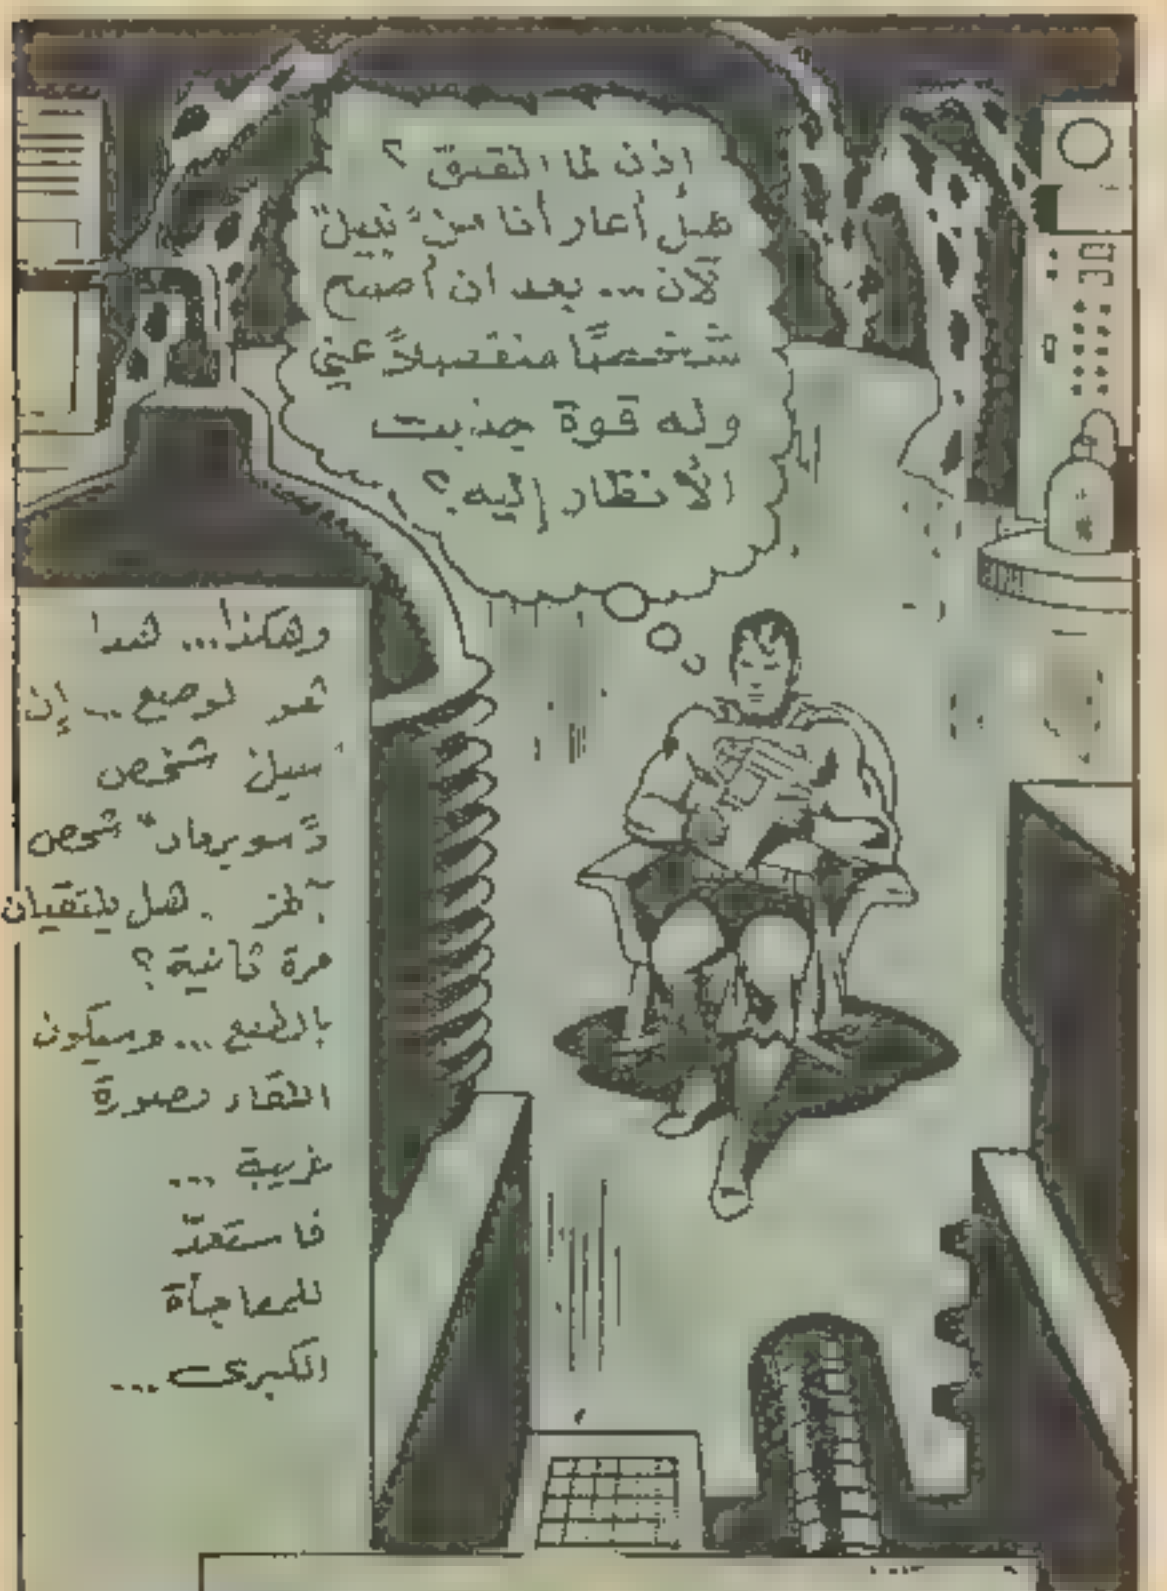 اذن لما القلق ؟
هل أغار أنا من "نبيل"
لآن ... بعد ان أصبح
شخصًا منفصلاً عني
وله قوة جذبت
الأنظار إليه ؟
وهكذا ... هذا
هو لوضع .. إن
نبيل شخص
و"سوبرمان" شخص
آخر . هل يلتقيان
مرة ثانية ؟
بالطبع ... وسيكون
اللقاء بصورة
غريبة ...
فاستعدّ
للمفاجأة
الكبرى ...